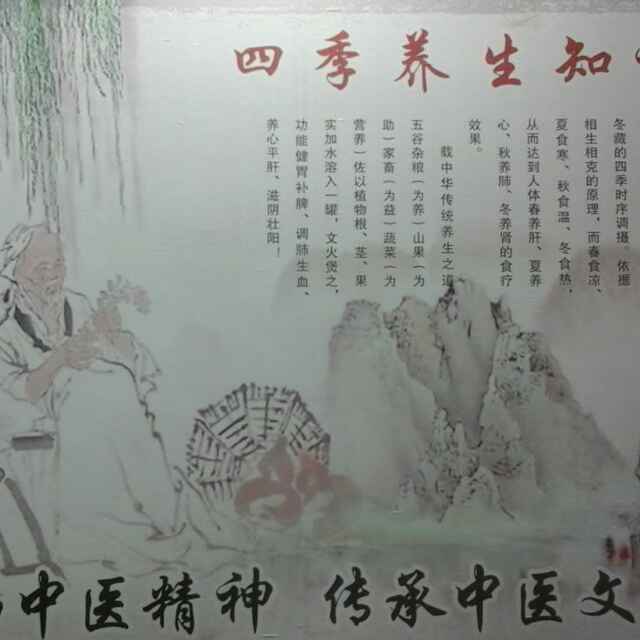 四季养生知
冬藏的四季时序调摄，依据
相生相克的原理，而春食凉、
夏食寒、秋食温、冬食热，
从而达到人体春养肝、夏养
心、秋养肺、冬养肾的食疗
效果。
载中华传统养生之道
五谷杂粮（为养）山果（为
助）家畜（为益）蔬菜（为
营养）佐以植物根、茎、果
实加水溶入一罐，文火煲之，
功能健胃补脾、调肺生血、
养心平肝、滋阴壮阳！
中医精神 传承中医文